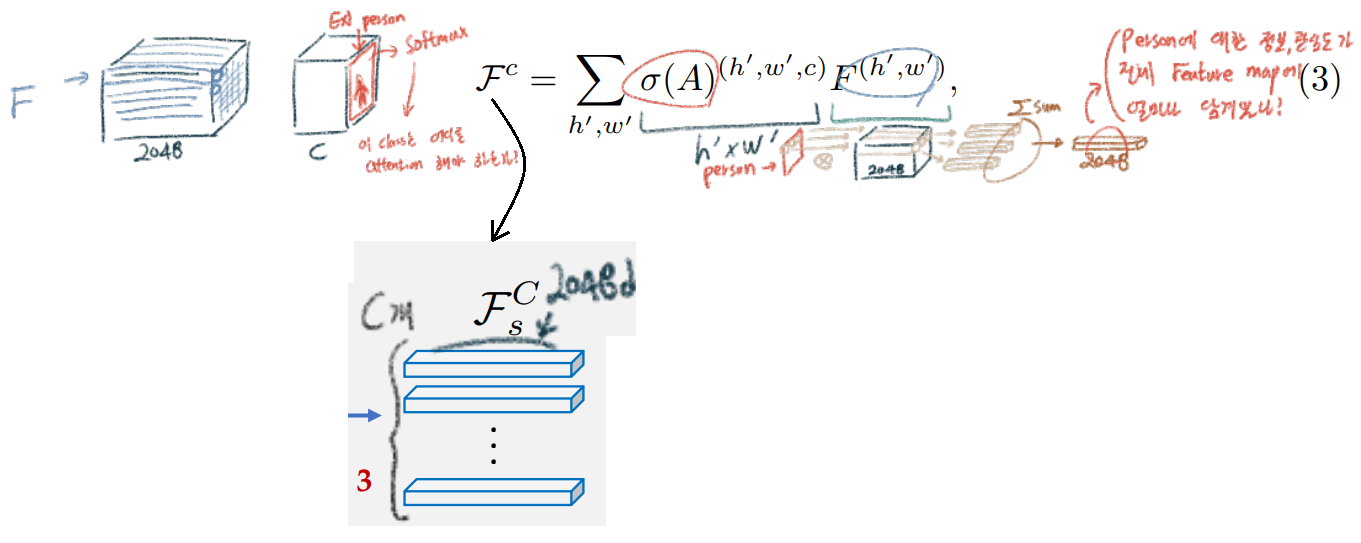 Ex) person
→ Softmax
F →
2048
C
이 class는 어디를
attention 해야 하는가?
𝓕^c = ∑_{h′,w′} σ(A)^{(h′,w′,c)} F^{(h′,w′)}, (3)
h'×w'
person →
⊗
2048
Σ sum
2048
Person에 대한 정보,
전체 Feature map에
얼마나 담겨있나?
𝓕_s^C 2048d
C개
⋮
3